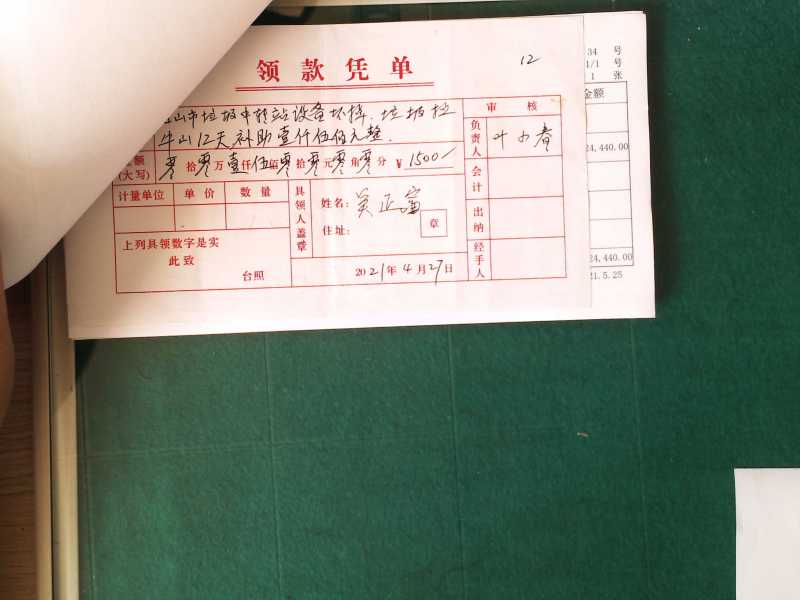 领款凭单
12
34 号
1/1 号
1 张
金额
山市垃圾中转站设备坏掉.垃圾拉
牛山12天补助壹仟伍佰元整.
审核
负责人 叶小春
额(大写) 零拾零万壹仟伍佰零拾零元零角零分 ¥1500/
24,440.00
计量单位 单价 数量
具领人盖章
姓名: 吴正富
住址:
章
会计
出纳
经手人
上列具领数字是实
此致
台照
2021年4月27日
24,440.00
21.5.25